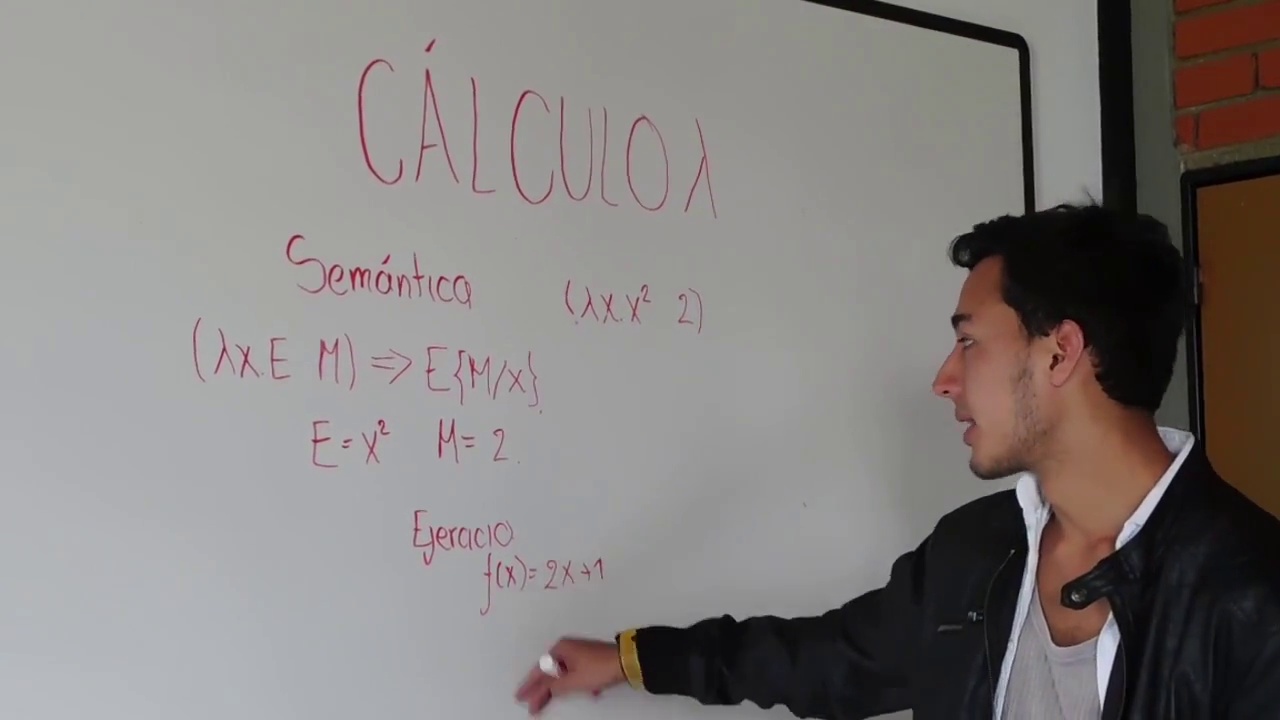 CÁLCULO λ
Semántica
(λx.x² 2)
(λx.E M) => E{M/x}.
E = x² M = 2.
Ejercicio
f(x) = 2x+1